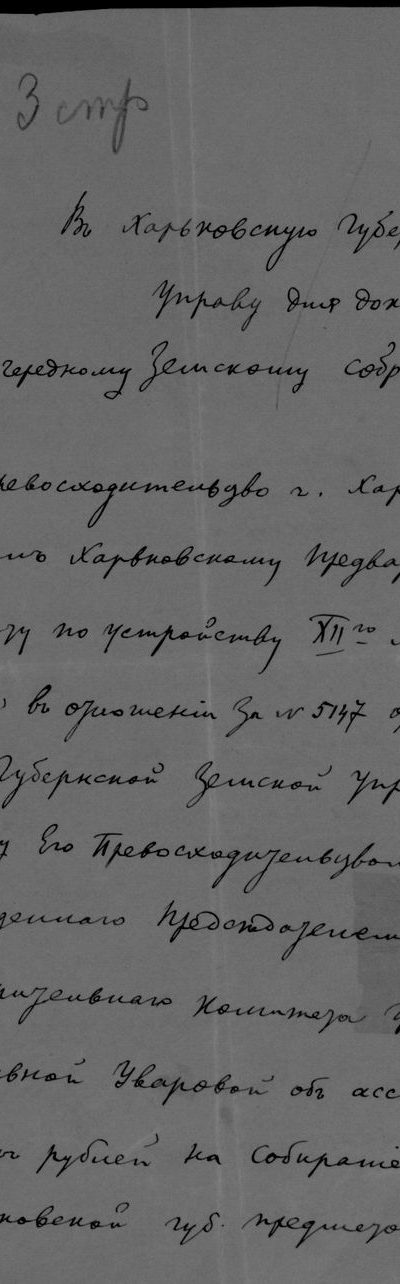 3 стр
Въ Харьковскую Губе
Управу для док
чередному Земскому собр
ревосходительство г. Хар
мъ Харьковскому Предва
ту по устройству XII го
въ отношеніи за № 5147
Губернской Земской Упр
у Его Превосходительством
деннаго Председателем
рительнаго Комитета
вной Уваровой объ асс
рублей на собираніе
ковской губ. предмето